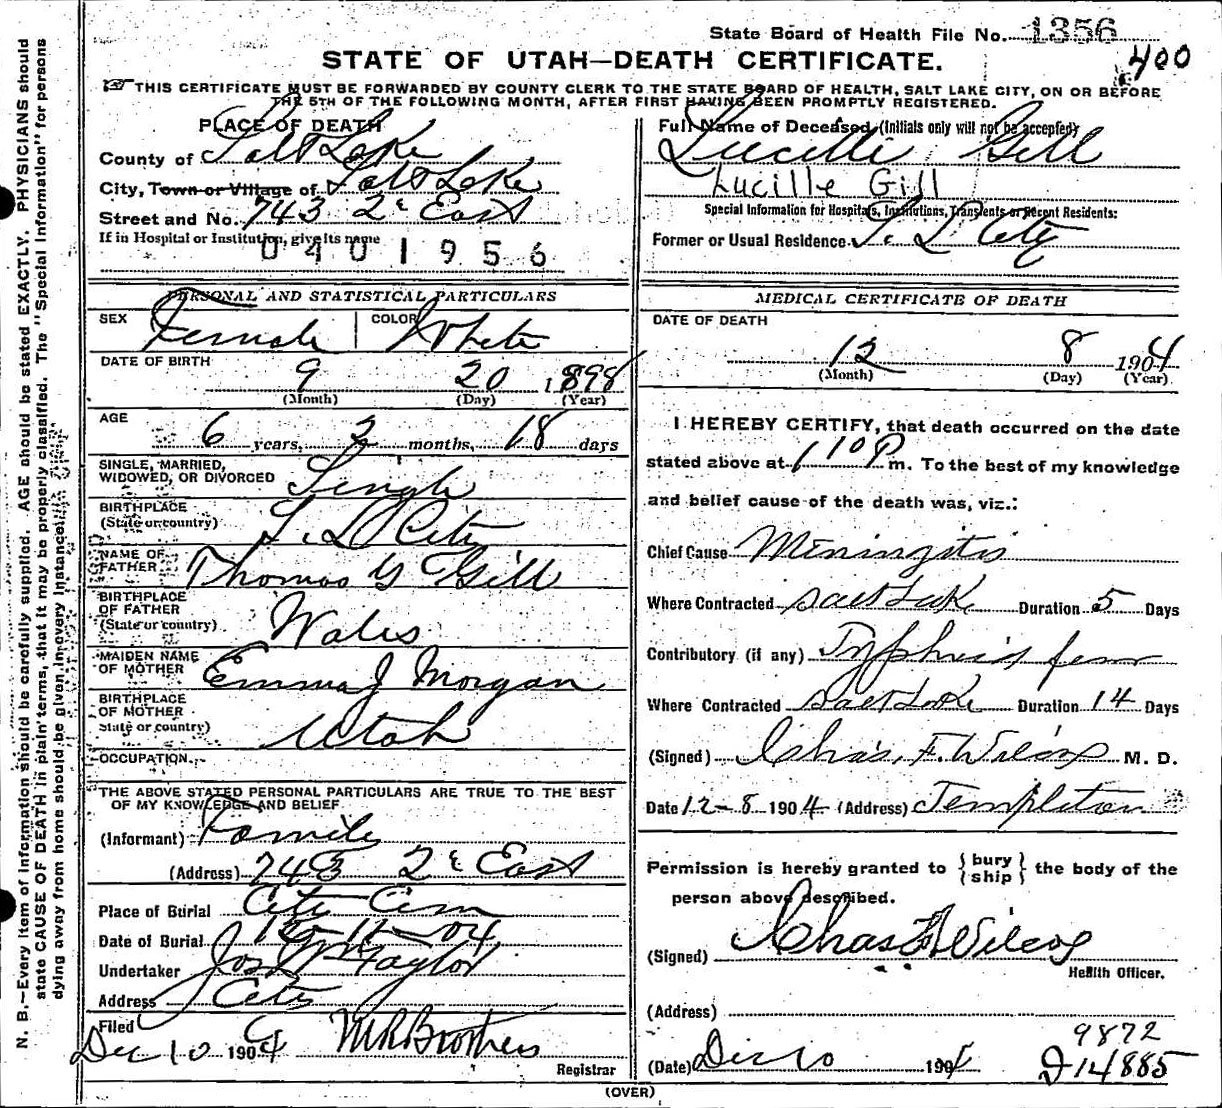 State Board of Health File No. 1356
400
STATE OF UTAH—DEATH CERTIFICATE.
THIS CERTIFICATE MUST BE FORWARDED BY COUNTY CLERK TO THE STATE BOARD OF HEALTH, SALT LAKE CITY, ON OR BEFORE
THE 5TH OF THE FOLLOWING MONTH, AFTER FIRST HAVING BEEN PROMPTLY REGISTERED.
PLACE OF DEATH
County of Salt Lake
City, Town or Village of Salt Lake
Street and No. 743 2d East
If in Hospital or Institution, give its name
0401956
PERSONAL AND STATISTICAL PARTICULARS
SEX Female COLOR White
DATE OF BIRTH
9 20 1898
(Month) (Day) (Year)
AGE
6 years, 2 months, 18 days
SINGLE, MARRIED,
WIDOWED, OR DIVORCED Single
BIRTHPLACE
(State or country) S. L City
NAME OF
FATHER Thomas G Gill
BIRTHPLACE
OF FATHER
(State or country) Wales
MAIDEN NAME
OF MOTHER Emma J Morgan
BIRTHPLACE
OF MOTHER
State or country) Utah
OCCUPATION
THE ABOVE STATED PERSONAL PARTICULARS ARE TRUE TO THE BEST
OF MY KNOWLEDGE AND BELIEF
(Informant) Family
(Address) 743 2d East
Place of Burial City Cem
Date of Burial 12-11-04
Undertaker Jos Wm Taylor
Address City
Filed
Dec 10 1904 Brothers
Registrar
Full Name of Deceased (Initials only will not be accepted)
Lucille Gill
Lucille Gill
Special Information for Hospitals, Institutions, Transients or Recent Residents:
Former or Usual Residence S. L City
MEDICAL CERTIFICATE OF DEATH
DATE OF DEATH
12 8 1904
(Month) (Day) (Year)
I HEREBY CERTIFY, that death occurred on the date
stated above at 1 10 P m. To the best of my knowledge
and belief cause of the death was, viz.:
Chief Cause Meningitis
Where Contracted Salt Lake Duration 5 Days
Contributory (if any) Typhoid fever
Where Contracted Salt Lake Duration 14 Days
(Signed) Chas. F. Wilcox M. D.
Date 12-8 1904 (Address) Templeton
Permission is hereby granted to { bury ship } the body of the
person above described.
(Signed) Chas F Wilcox
Health Officer.
(Address)
9872
(Date) Dec 10 1904 14885
(OVER)
N. B.—Every item of information should be carefully supplied. AGE should be stated EXACTLY. PHYSICIANS should
state CAUSE OF DEATH in plain terms, that it may be properly classified. The "Special Information" for persons
dying away from home should be given in every instance.